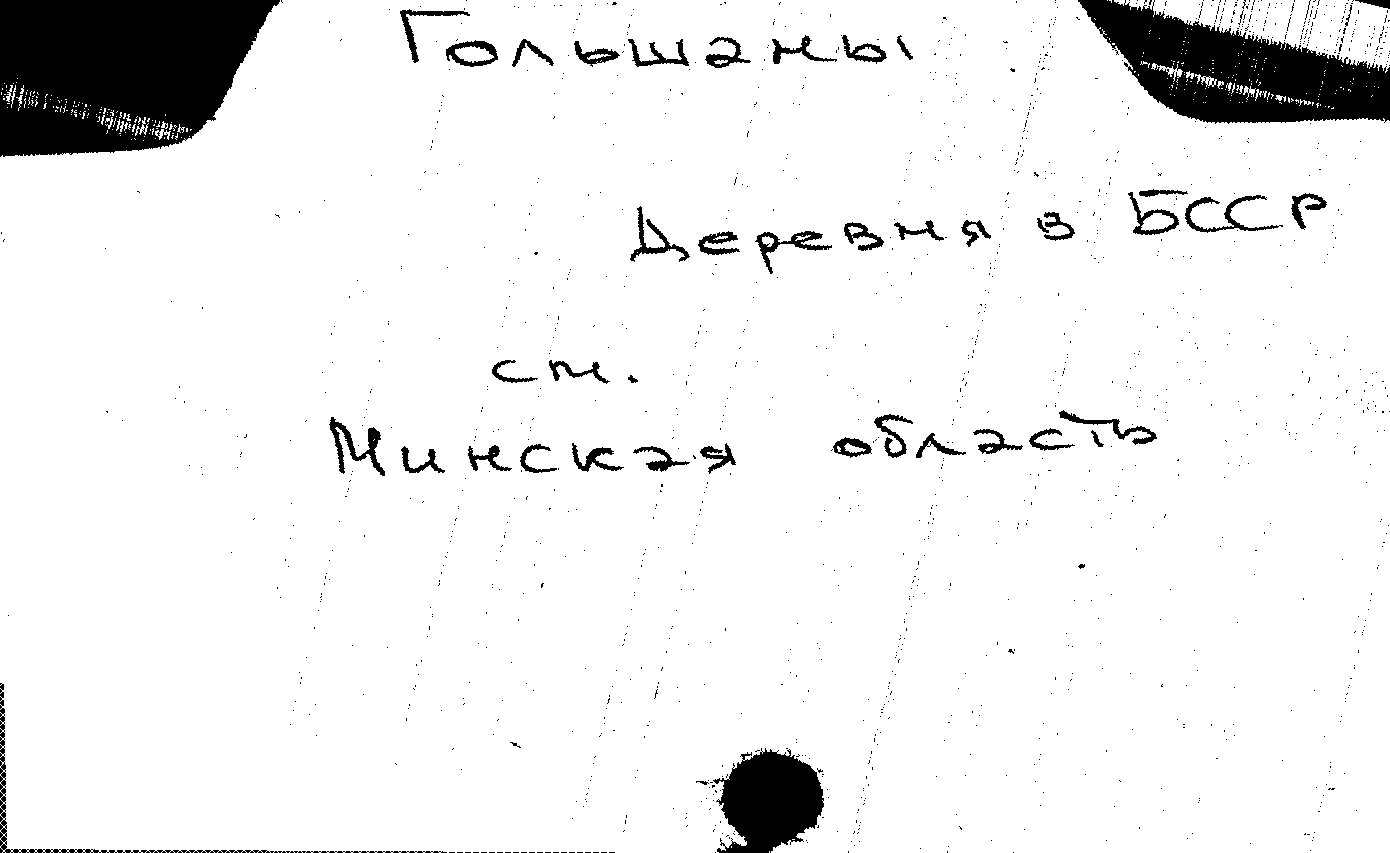 Гольшаны
Деревня в БССР
см.
Минская область